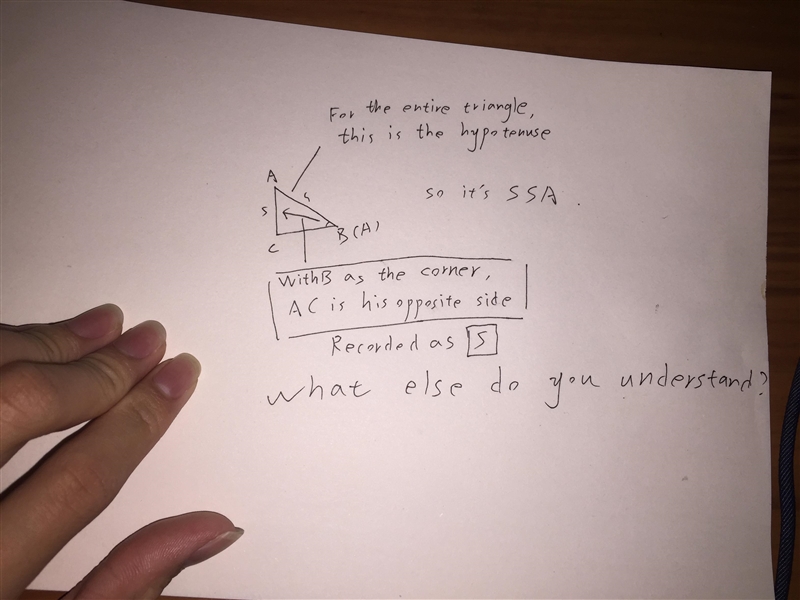 For the entire triangle,
this is the hypotenuse
A
S
S
so it's SSA.
B(A)
C
With B as the corner,
AC is his opposite side
Recorded as S
What else do you understand?